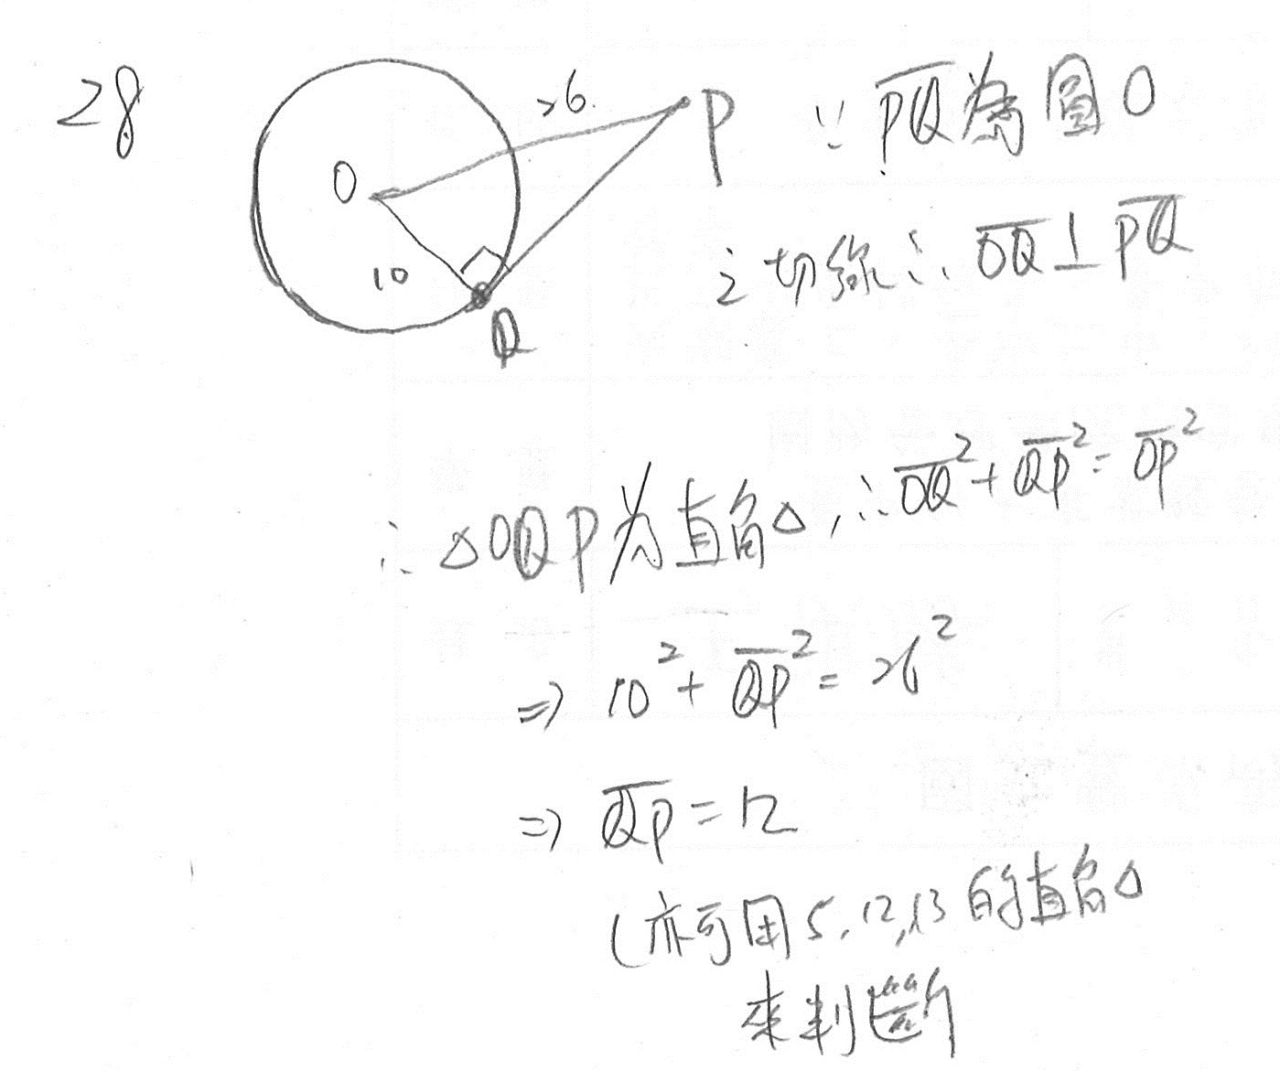 28
26
P
O
10
Q
∵ P̅Q̅為圓O
之切線∴ O̅Q̅⊥P̅Q̅
∴ △OQP為直角△,∴ O̅Q̅²+Q̅P̅²=O̅P̅²
⇒ 10²+Q̅P̅²=26²
⇒ Q̅P̅=12
(亦可用5,12,13的直角△
來判斷